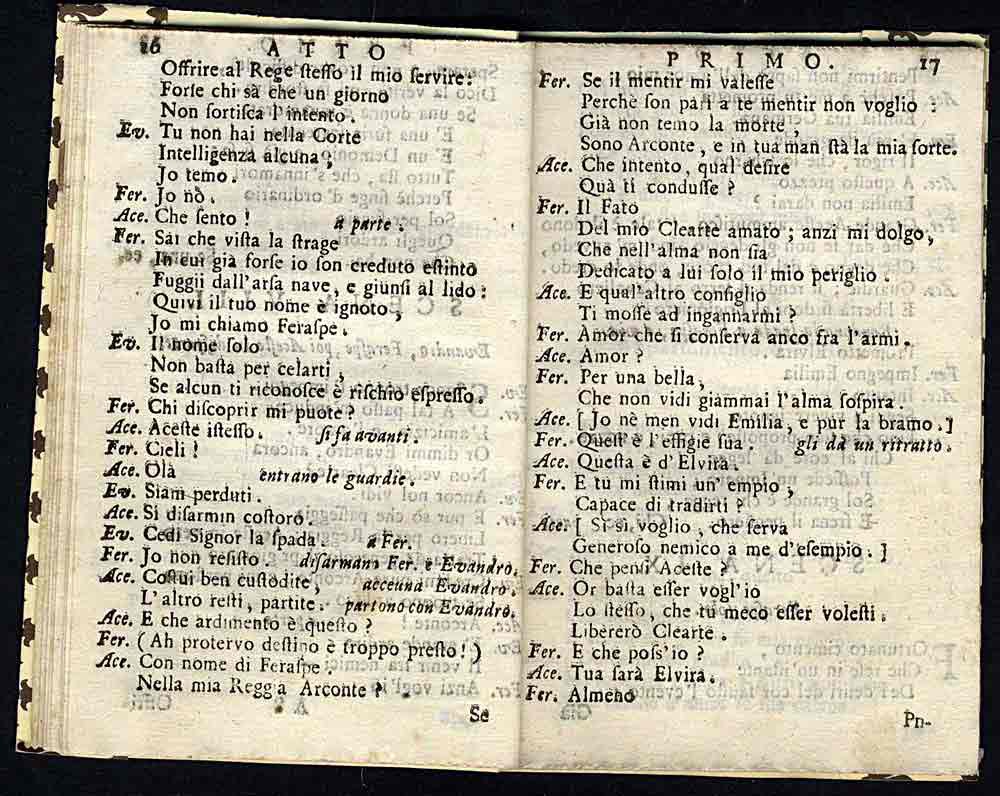 16 ATTO
Offrire al Rege ſteſſo il mio ſervire:
Forſe chi sà che un giorno
Non ſortiſca l'intento.
Ev. Tu non hai nella Corte
Intelligenza alcuna;
Jo temo.
Fer. Jo nò.
Ace. Che ſento! à parte.
Fer. Sai che viſta la ſtrage
In cui già forſe io ſon creduto eſtinto
Fuggii dall'arſa nave, e giunſi al lido:
Quivi il tuo nome è ignoto,
Jo mi chiamo Feraſpe.
Ev. Il nome ſolo
Non baſta per celarti,
Se alcun ti riconoſce è riſchio eſpreſſo.
Fer. Chi diſcoprir mi puote?
Ace. Aceſte iſteſſo. ſi fa avanti.
Fer. Cieli!
Ace. Olà entrano le guardie.
Ev. Siam perduti.
Ace. Si diſarmin coſtoro.
Ev. Cedi Signor la ſpada. à Fer.
Fer. Jo non reſiſto. diſarmano Fer. e Evandro.
Ace. Coſtui ben cuſtodite, accenna Evandro.
L'altro reſti, partite. partono con Evandro.
Ace. E che ardimento è queſto?
Fer. (Ah protervo deſtino è troppo preſto!)
Ace. Con nome di Feraſpe
Nella mia Reggia Arconte?
Se
PRIMO. 17
Fer. Se il mentir mi valeſſe
Perchè ſon pari a te mentir non voglio:
Già non temo la morte,
Sono Arconte, e in tua man ſtà la mia ſorte.
Ace. Che intento, qual deſire
Quà ti conduſſe?
Fer. Il Fato
Del mio Clearte amato; anzi mi dolgo,
Che nell'alma non ſia
Dedicato a lui ſolo il mio periglio.
Ace. E qual'altro conſiglio
Ti moſſe ad ingannarmi?
Fer. Amor che ſi conſerva anco fra l'armi.
Ace. Amor?
Fer. Per una bella,
Che non vidi giammai l'alma ſoſpira.
Ace. [Jo nè men vidi Emilia, e pur la bramo.]
Fer. Queſt'è l'effigie ſua. gli dà un ritratto.
Ace. Queſta è d'Elvira.
Fer. E tu mi ſtimi un'empio,
Capace di tradirti?
Ace. [Sì sì voglio, che ſerva
Generoſo nemico a me d'eſempio.]
Fer. Che penſi Aceſte?
Ace. Or baſta eſſer vogl'io
Lo ſteſſo, che tu meco eſſer voleſti.
Libererò Clearte.
Fer. E che poſs'io?
Ace. Tua ſarà Elvira.
Fer. Almeno
Pn-